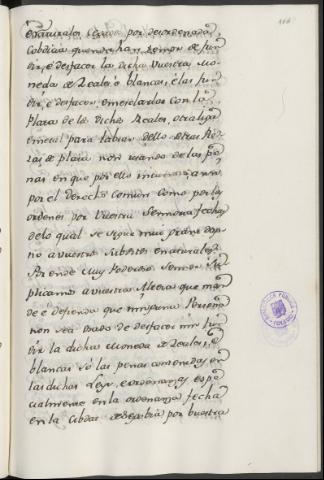 enaturales
Cobdicia que non han temor de fun
dir, e desfacer la dicha Vuestra Mo
neda de Reales o blancas, e las fun
dir, e desfacer, e mezclarlos con la
Plata de los dichos Reales, otra liga
e metal para labrar dello otras Ro
zas de plata non curando de las pe
nas en que por ello incurren, asi
por el derecho comun como por las
ordenes por Vuestra Sennoria fechas
de lo qual se sigue mui grand dap
no a vuestros subditos e naturales
Por ende Muy Poderoso Sennor Su
plicamos a vuestra Alteza que man
de e defienda que ninguna Persona
non sea osado de desfacer nin fun
dir la dicha Moneda de Reales, e
blancas so las penas contenidas en
las dichas Leyes, e ordenanzas espe
cialmente en la ordenanza fecha
en la Cibdad de Segobia por vuestra